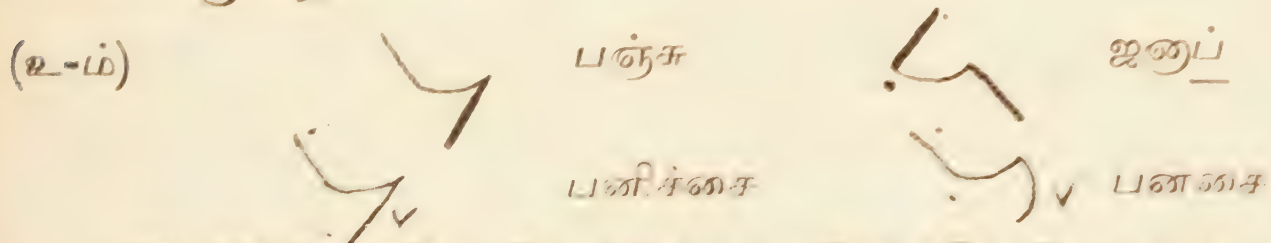 (உ-ம்) பஞ்சு ஜனப்
பனிச்சை பனசை